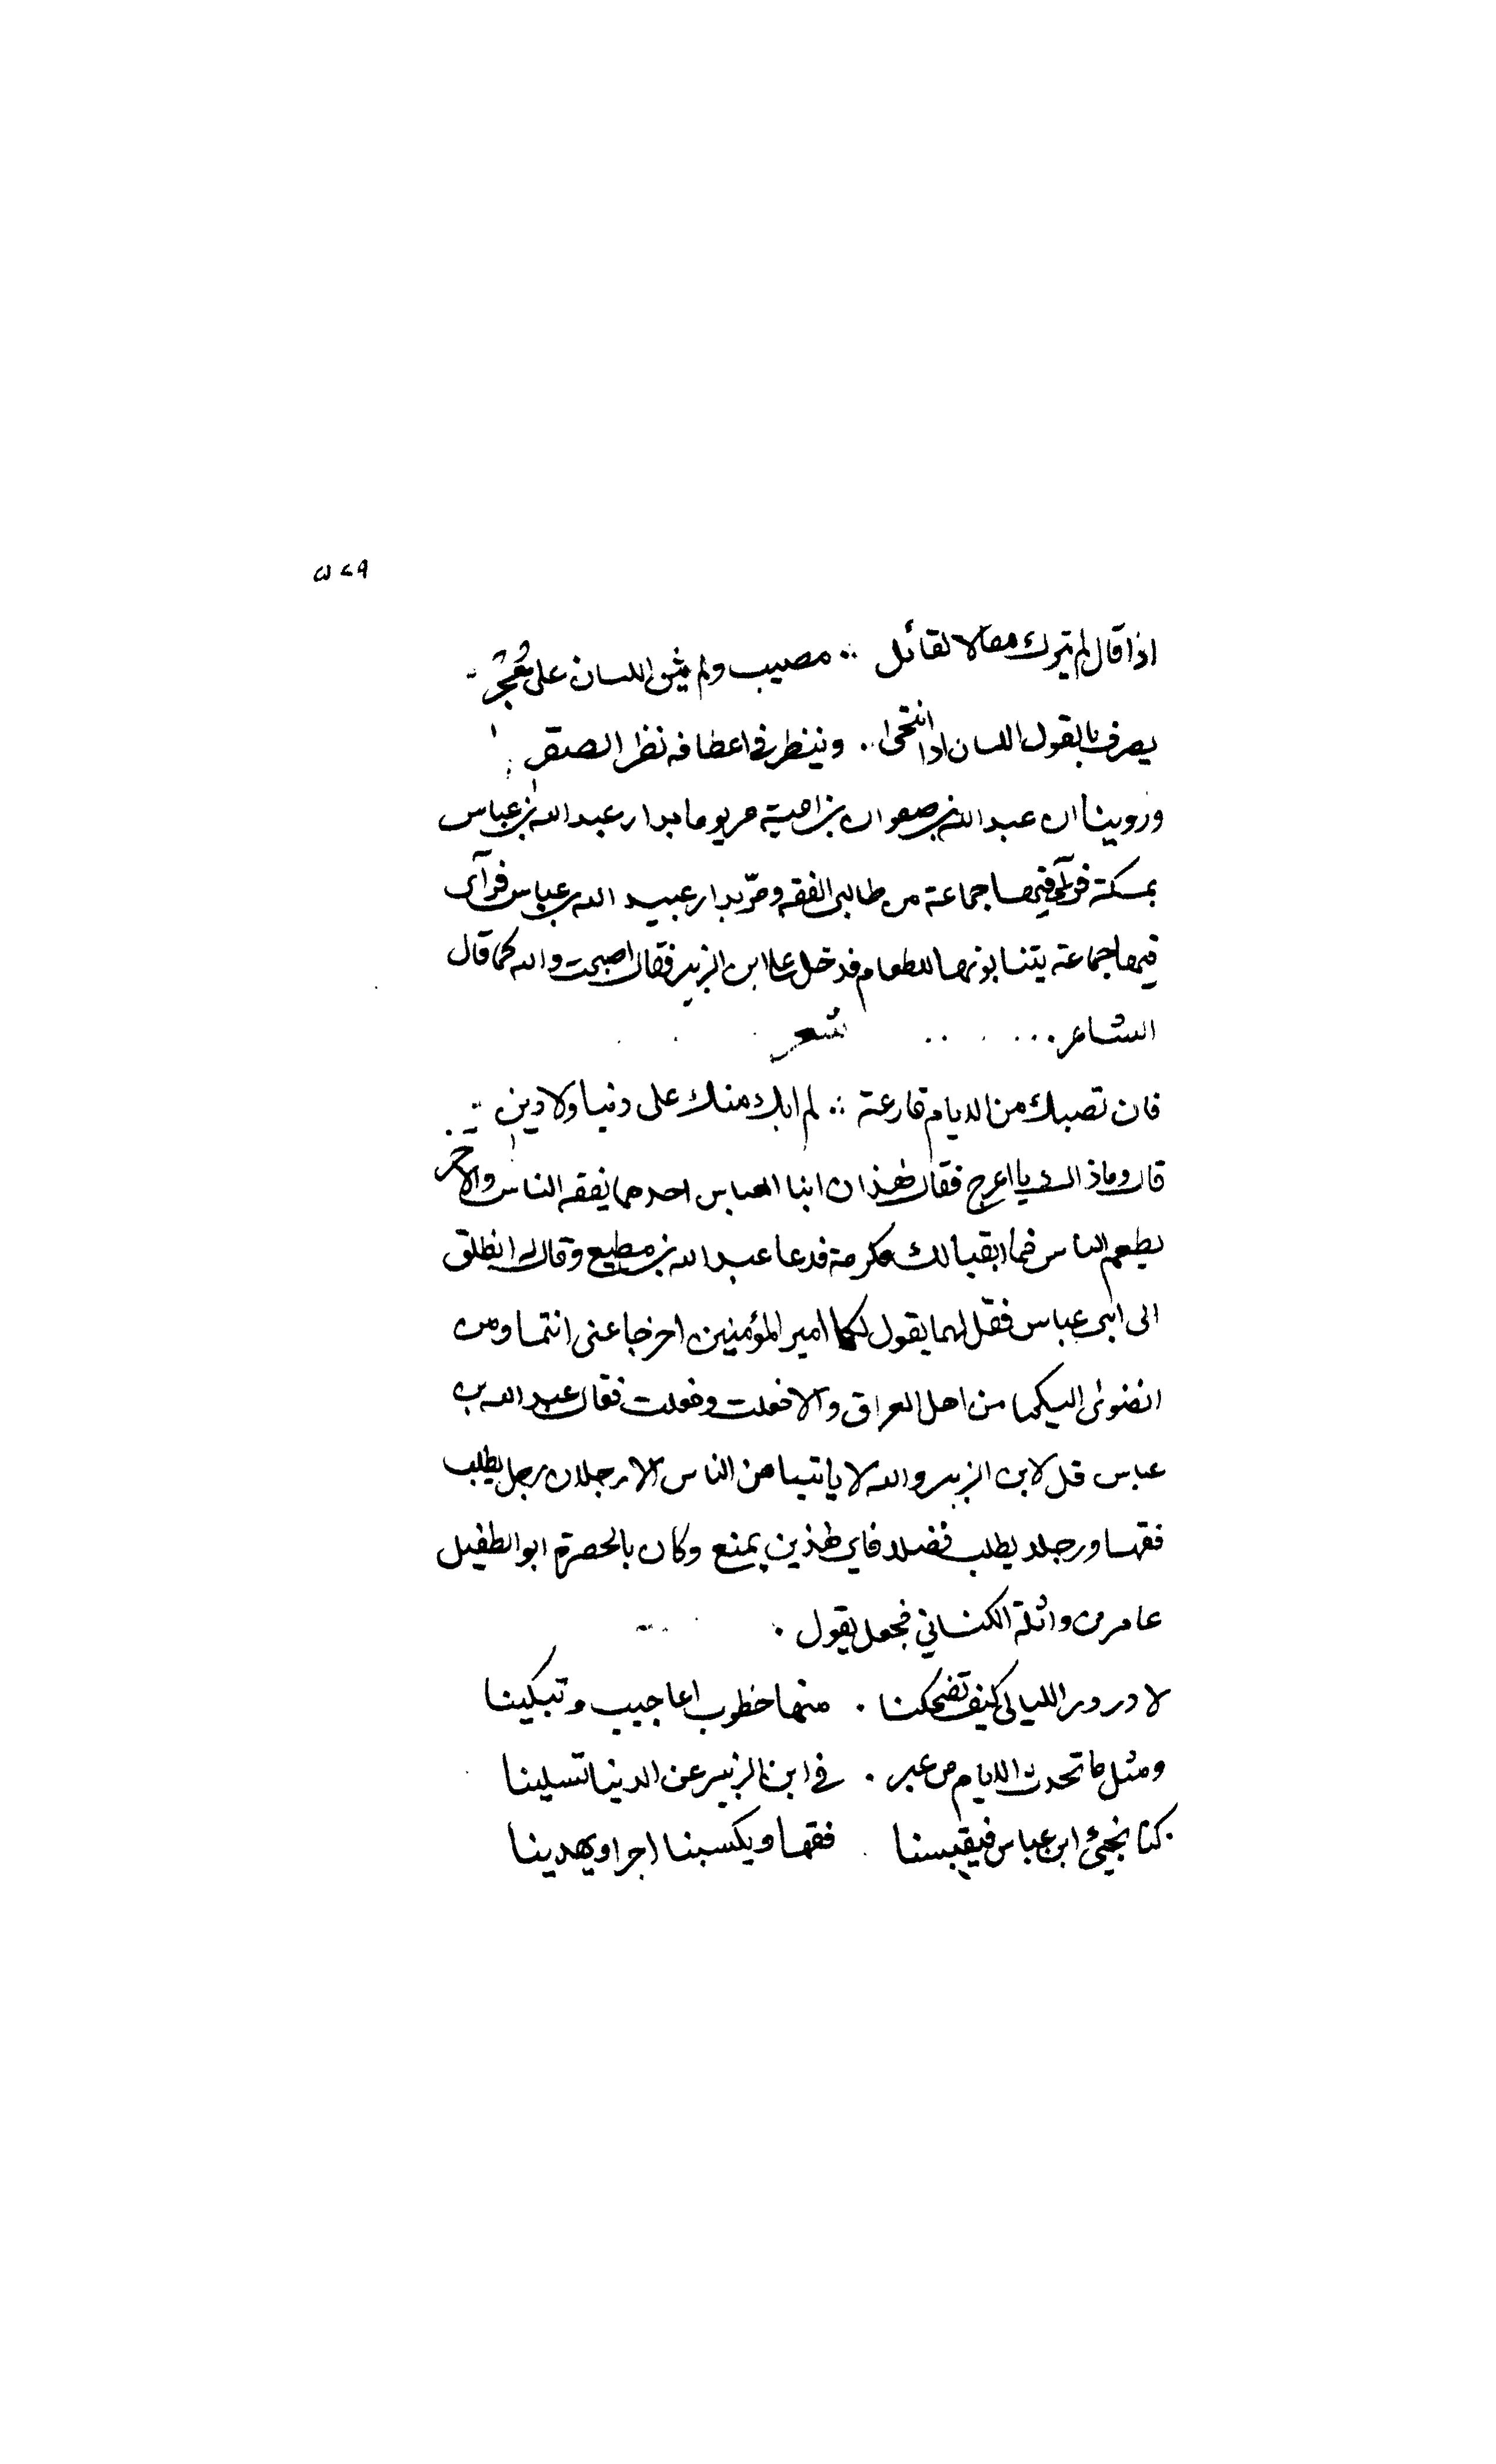 ٥٢٩
اذا قال لم يترك مقالا لقائل ∴ مصيب ولم يثن اللسان على هجر
يصرف بالقول اللسان اذا انتحى ∴ وينظر في اعطافه نظر الصقر
وروينا ان عبد الله بن صفوان بن امية مر يوما بدار عبد الله بن عباس
بمكة فرآى فيها جماعة من طالبي الفقه ومرّ بدار عبيد الله بن عباس فرآى
فيها جماعة يتنابونها للطعام فدخل على ابن الزبير فقال اصبحت والله كما قال
الشاعر شعر
فان تصبك من الايام قارعة ∴ لم ابك منك على دنيا ولا دين
قال وما ذاك يا اعرج فقال هذان ابنا العباس احدهما يفقه الناس والآخر
يطعم الناس فما ابقيا لك مكرمة فدعا عبد الله بن مطيع وقال له انطلق
الى ابني عباس فقل لهما يقول لكما امير المؤمنين اخرجا عني انتما ومن
انضوى اليكما من اهل العراق والا فعلت وفعلت فقال عبد الله بن
عباس قل لابن الزبير والله لا ياتينا من الناس الا رجلان رجل يطلب
فقها ورجل يطلب فضلا فاي هذين يمنع وكان بالحضرة ابو الطفيل
عامر بن واثلة الكناني فجعل يقول
لا در در الليالي كيف تضحكنا . منها خطوب اعاجيب وتبكينا
ومثل ما تحدث الايام من عبر . في ابن الزبير عن الدنيا تسلينا
كنا نجيئ ابن عباس فيقبسنا . فقها ويكسبنا اجرا ويهدينا